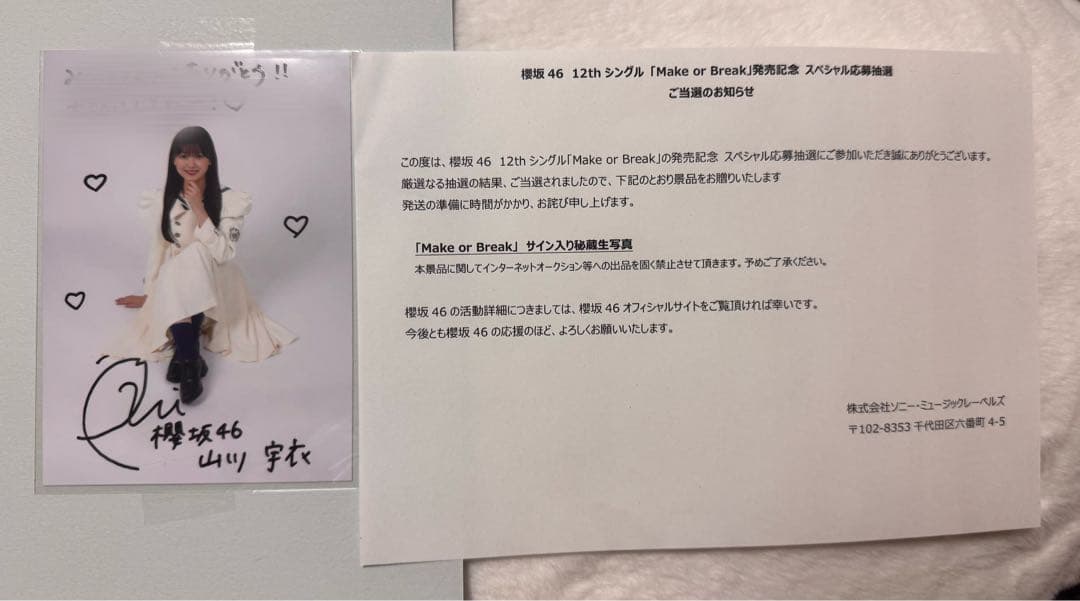 ありがとう!!
櫻坂46
山川 宇衣
櫻坂46 12thシングル「Make or Break」発売記念 スペシャル応募抽選
ご当選のお知らせ
この度は、櫻坂46 12thシングル「Make or Break」の発売記念 スペシャル応募抽選にご参加いただき誠にありがとうございます。
厳選なる抽選の結果、ご当選されましたので、下記のとおり景品をお贈りいたします
発送の準備に時間がかかり、お詫び申し上げます。
「Make or Break」 サイン入り秘蔵生写真
本景品に関してインターネットオークション等への出品を固く禁止させて頂きます。予めご了承ください。
櫻坂46の活動詳細につきましては、櫻坂46オフィシャルサイトをご覧頂ければ幸いです。
今後とも櫻坂46の応援のほど、よろしくお願いいたします。
株式会社ソニー・ミュージックレーベルズ
〒102-8353 千代田区六番町 4-5